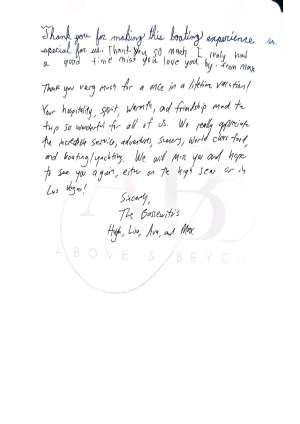 Thank you for making this boating experience so
special for us. Thank you so much I realy had
a good time miss you love you by. from Max
Thank you very much for a once in a lifetime vacation!
Your hospitality, spirit, warmth, and friendship made the
trip so wonderful for all of us. We really appreciate
the incredible service, adventures, scenery, world class food,
and boating/yachting. We will miss you and hope
to see you again, either on the high seas or in
Las Vegas!
Sincerely,
The
Hugh, Lisa, Ava, and Max
ABOVE & BEYO